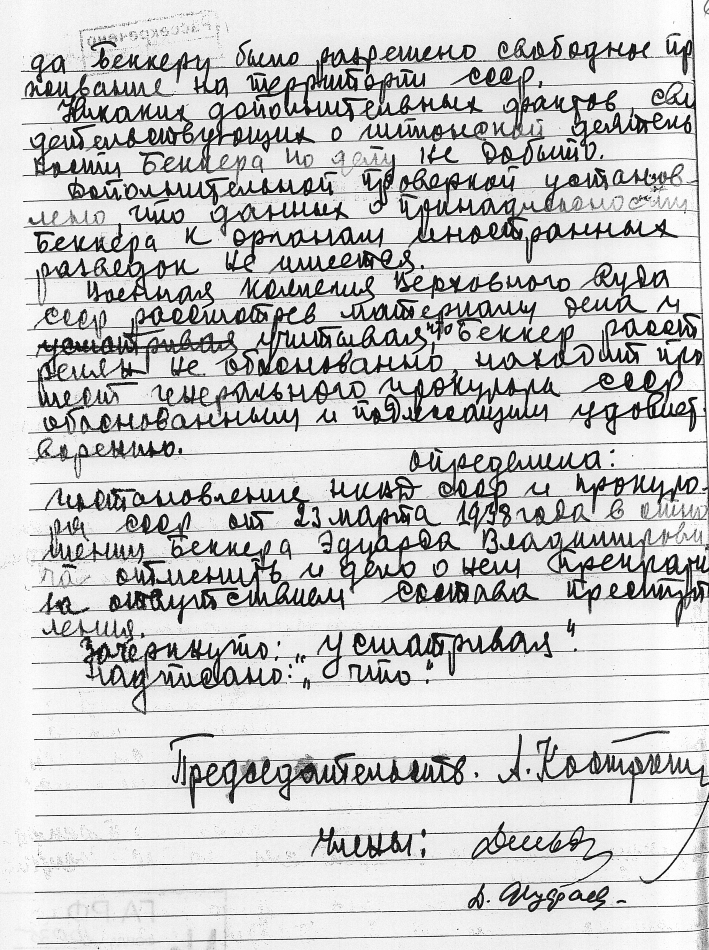 Рассекречено
да Беккеру было разрешено свободное про
живание на територти ссср.
Никаких дополнительных фактов, сви
детельствующих о шпионской деятель
ности Беккера по делу не добыто.
Дополнительной проверкой установ
лено, что данных о принадлежности
Беккера к органам иностранных
разведок не имеется.
Военная Коллегия Верховного Суда
ссср рассмотрев материалы дела и
усматривая учитывая, что Беккер расст
релян не обоснованно, находит про
тест генерального прокурора ссср
обоснованным и подлежащим удовлет
ворению.
определила:
постановление НКВД ссср и прокуро-
ра ссср от 23 марта 1938 года в отно
шении Беккера Эдуарда Владимирови
ча отменить и дело о нем прекрати
за отсутствием состава преступ
ления.
Зачеркнуто: „усматривая".
Надписано: „что".
Председательств. А. Костромин
Члены:
ГА РФ